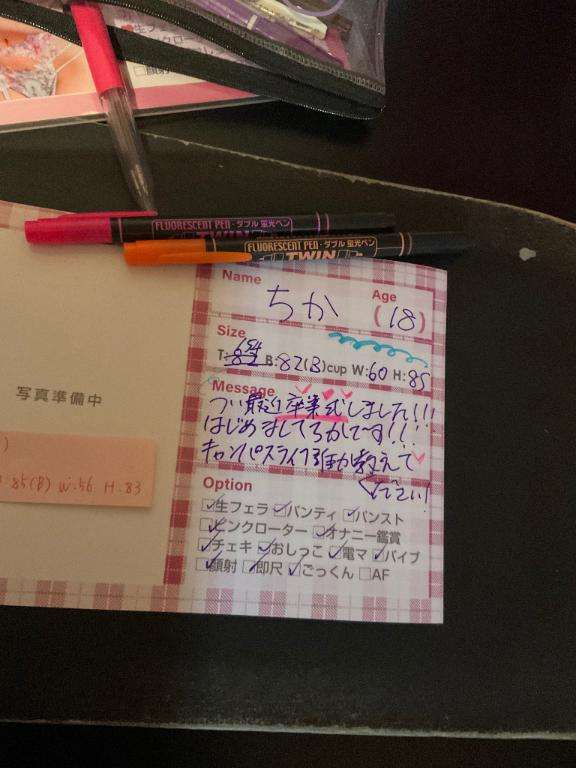 FLUORESCENT PEN・ダブル蛍光ペン
TWIN
FLUORESCENT PEN・ダブル蛍光ペン
TWIN
写真準備中
85(B) W:56 H:83
Name
ちか
Age
(18)
Size
B:82(B)cup W:60 H:85
Message
つい最近卒業式しました!!!
はじめましてちかで〜す!!
キャンパスライフ
教えて
ください!
Option
生フェラ パンティ パンスト
ピンクローター オナニー鑑賞
チェキ おしっこ 電マ バイブ
顔射 即尺 ごっくん AF